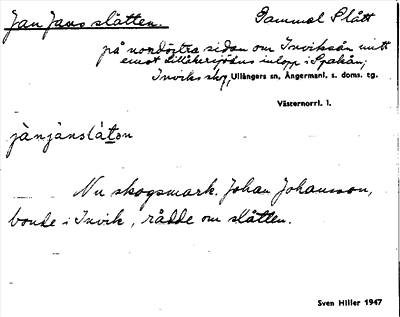 Jan Jans slåtten.
Gammal Slått
på nordöstra sidan om Inviksån mitt
emot Lillåkersjöåns inlopp i Spakån;
Inviks skog, Ullångers sn, Ångermanl. s. doms. tg.
Västernorrl. l.
jànjànslå̀tən
Nu skogsmark. Johan Johansson,
bonde i Invik, rådde om slåtten.
Sven Hiller 1947